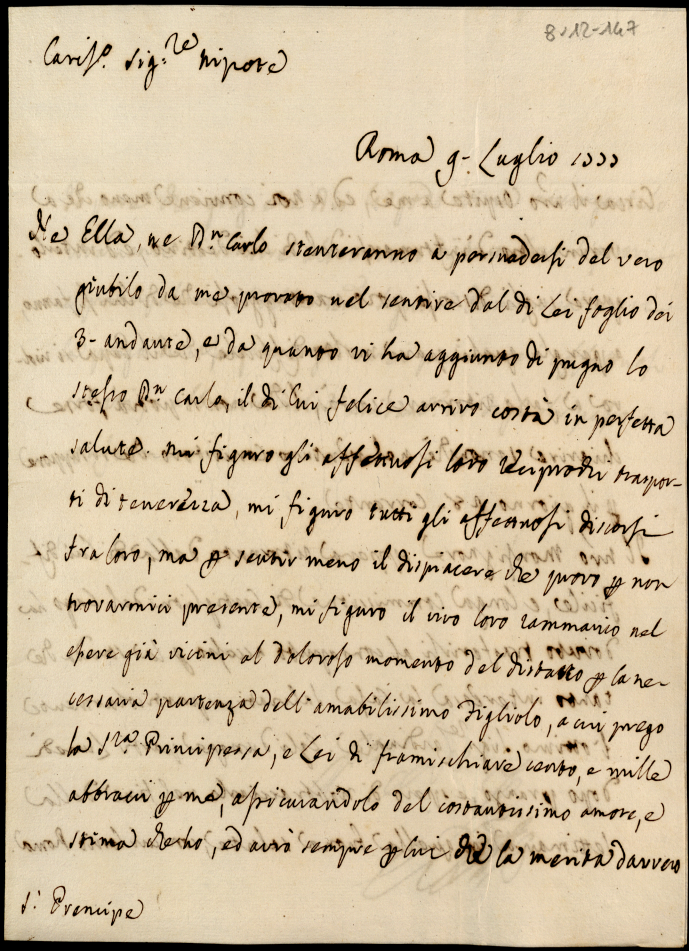 8-12-147
Cariss.o Sig.re Nipote
Roma 9- Luglio 1777
Nè Ella, nè Dn Carlo stenteranno a persuadersi del vero
giubilo da me provato nel sentire dal di Lei foglio dei
3- andante, e da quanto vi ha aggiunto di pugno lo
stesso Dn Carlo, il di Cui felice arrivo costà in perfetta
salute. mi figuro gli affettuosi loro reciprochi traspor-
ti di tenerezza, mi figuro tutti gli affettuosi discorsi
fra loro, ma p sentir meno il dispiacere che provo p non
trovarmici presente, mi figuro il vivo loro rammarico nel
essere già vicini al doloroso momento del distacco p la ne-
cessaria partenza dell'amabilissimo Figliolo, a cui prego
la Sra Principessa, e Lei di framischiare cento, e mille
abbracci p me, assicurandolo del costantissimo amore, e
stima che ho, ed avrò sempre p lui chè la merita davvero
Prencipe